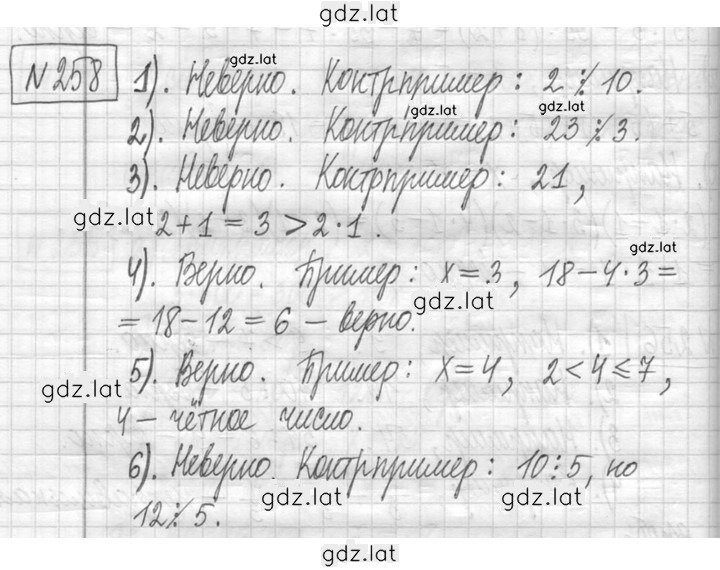 gdz.lat
N 258 1). Неверно. Контрпример: 2 ⋮̸ 10.
gdz.lat
2). Неверно. Контрпример: 23 ⋮̸ 3.
gdz.lat gdz.lat
3). Неверно. Контрпример: 21,
gdz.lat 2+1 = 3 > 2·1.
gdz.lat
4). Верно. Пример: x = 3, 18 – 4·3 =
= 18 – 12 = 6 – верно.
gdz.lat
5). Верно. Пример: x = 4, 2 < 4 ⩽ 7,
gdz.lat
4 – чётное число.
6). Неверно. Контрпример: 10 ⋮ 5, но
gdz.lat gdz.lat
12 ⋮̸ 5.
gdz.lat